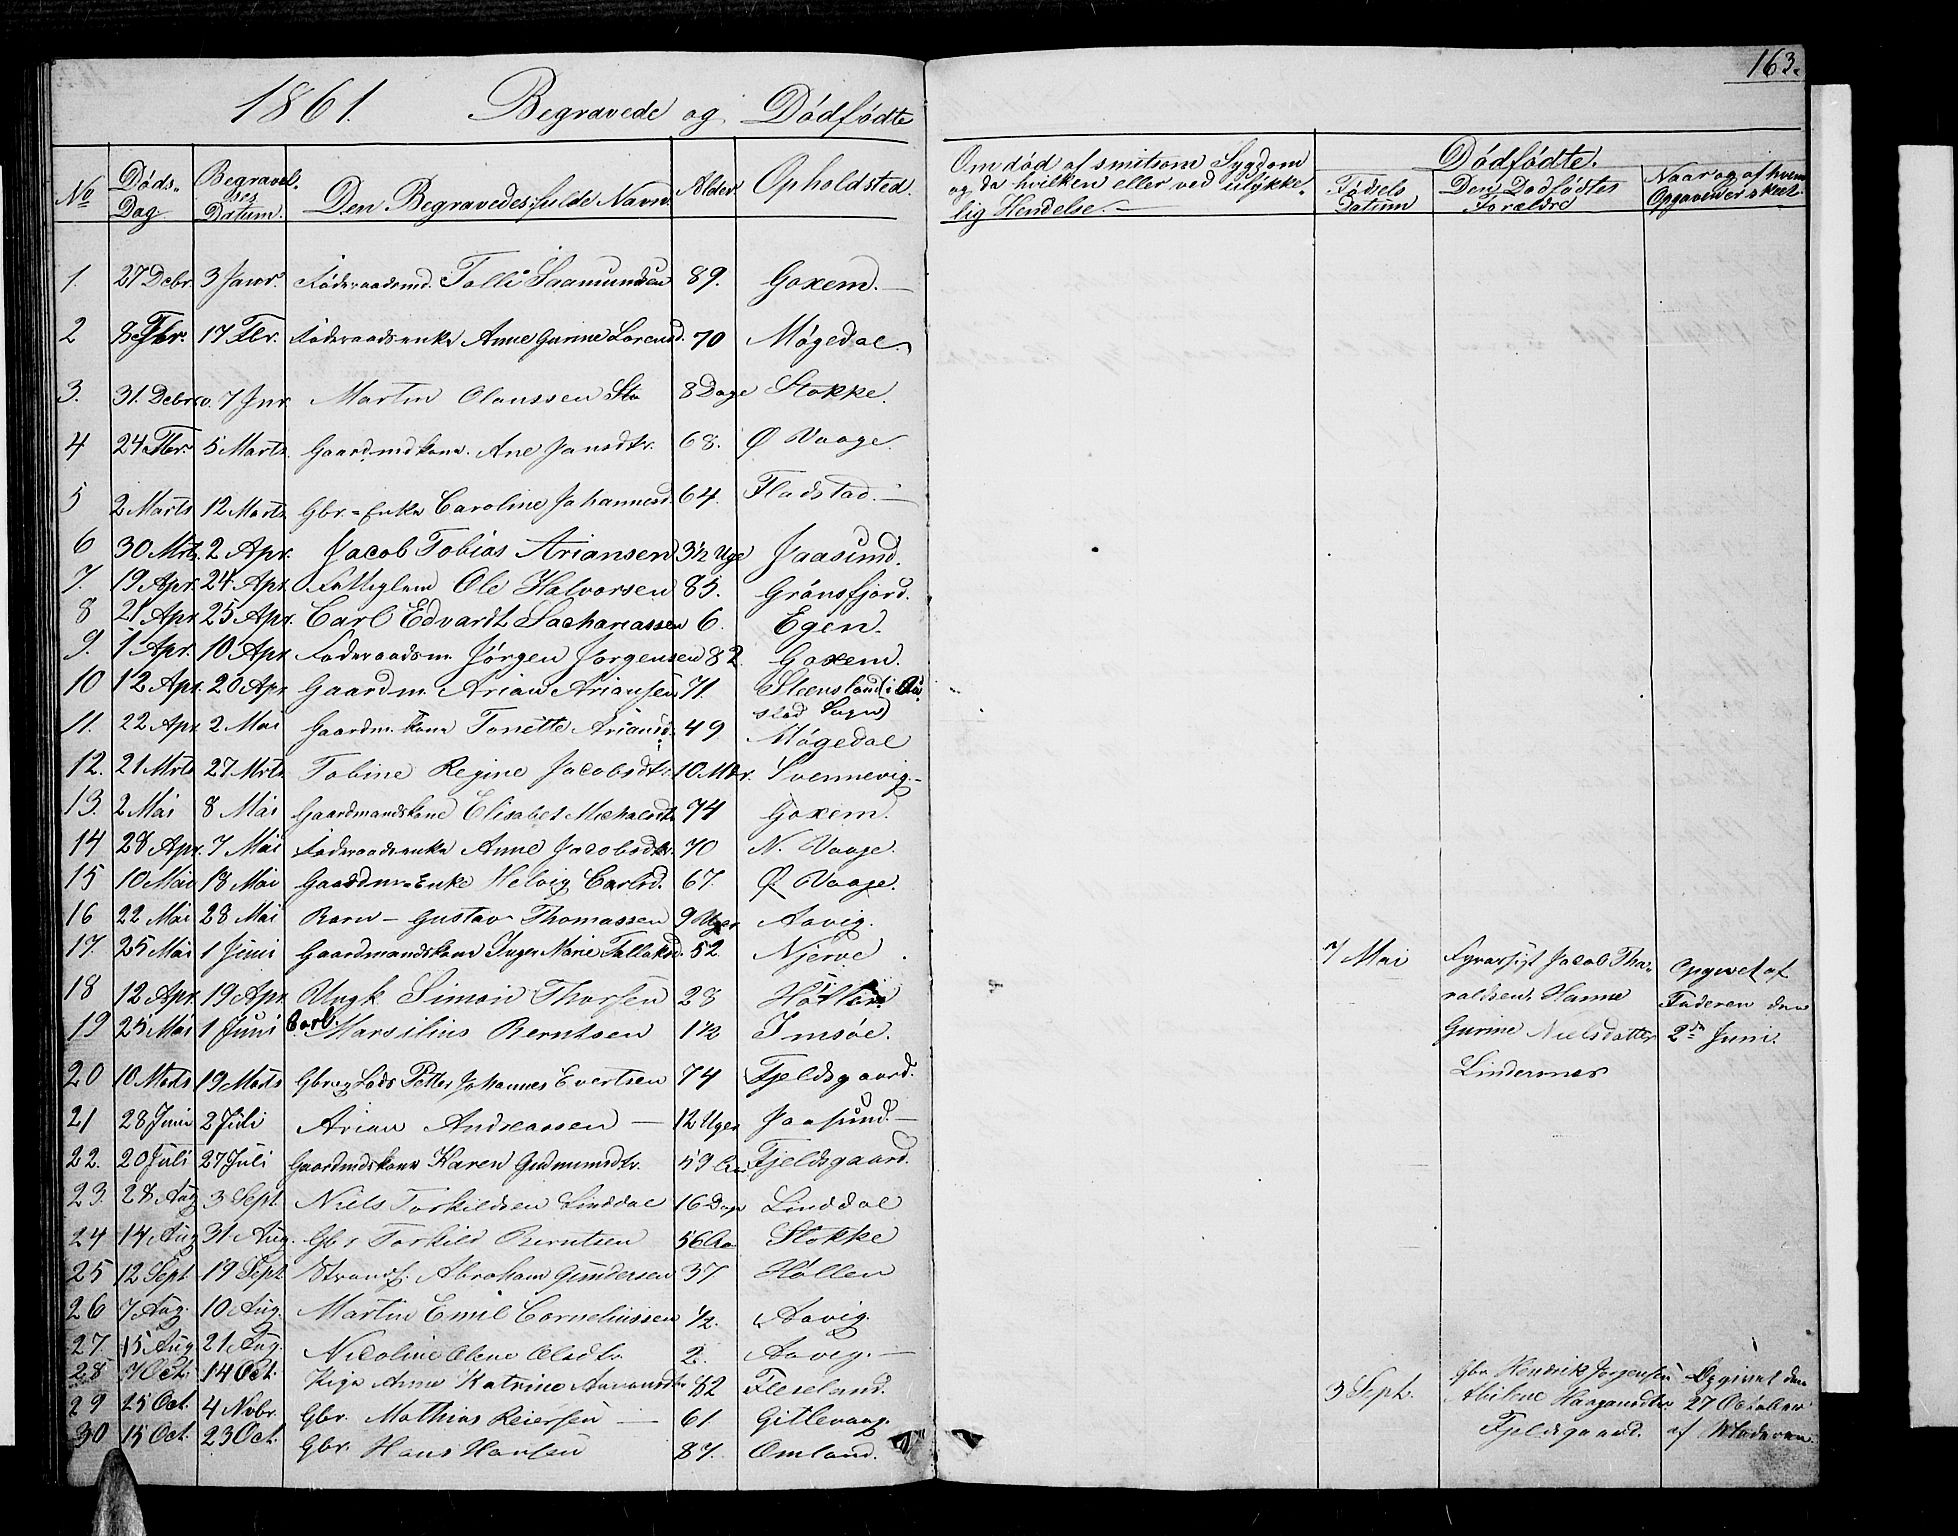 163.
1861. Begravede og Dödfödte
No Döds- Dag Begravel- ses Datum. Den Begravedes fulde Navn Alder. Opholdsted.
Om död af smitsom Sygdom og da hvilken eller ved ulykke- lig Hendelse.
Dödfödte.
Födsels Datum Den Dödfödtes Forældre Naar og af hvem Opgaven er skeet
1. 27 Debr 3 Janr. Föderaadsmd. Tolli Saamundsen 89. Goxem.
2 8 Fbr. 17 Fbr. Föderaadsenke Anne Gurine Lorensd. 70 Møgedal.
3. 31. Debr 7 Jnr. Martin Olaussen 8 Dage Stokke.
4 24 Fbr. 5 Marts Gaardmdkone. Ane Jansdtr. 68. Ø Vaage.
5 2 Marts 12 Marts Gbr.-Enke Caroline Johannesd. 64. Fladstad.
6 30 Mrts. 2 Apr. Jacob Tobias Ariansen 3½ Uge Jaasund.
7. 19 Apr. 24 Apr. Fattiglem Ole Halvorsen 85. Grönsfjord.
8 21 Apr. 25 Apr. Carl Edvardt Sachariassen 6. Egen.
9. 1 Apr. 10 Apr. Föderaadsm. Jørgen Jørgensen 82. Goxem.
10 12 Apr. 20 Apr. Gaardm. Arian Ariansen 71. Steensland i
11. 22 Apr. 2 Mai Gaardm. kone Tonette Ariansd. 49 stad Sogn)
Møgedal
12. 21 Mrts 27 Mrts. Tobine Regine Jacobsdtr. 10 Mdr. Svennevig.
13. 2 Mai 8 Mai Gaardmandskone Elisabet Michaelsdtr 74 Goxem.
14 28 Apr. 7 Mai Föderaadsenke Anne Jacobsdtr. 70 N. Vaage.
15 10 Mai 18 Mai Gaardm-Enke Helvig Carlsd. 67. Ø. Vaage.
16 22 Mai 28 Mai Barn - Gustav Thomassen 9 Uger Aavig.
17. 25 Mai 1 Juni Gaardmandskone Inger Marie Tallaksd. 52. Njerve
18 12 Apr. 19 Apr. Ungk Simon Thorsen 28
19 25 Mai 1 Juni Carl Marsilius Berntsen 1½ Imsøe.
20 10 Marts 19 Marts Gbr. og Lods Petter Johannes Evertsen 74 Fjeldsgaard.
21 28 Juni 2 Juli Arian Andreassen 12 Uger Jaasund.
22. 20 Juli 27 Juli Gaardmdskone Karen Gudmundsdtr. 59 Aar Fjeldsgaard.
23. 28 Aug 3 Sept. Niels Torkildsen Linddal 16 Dage Linddal
24 14 Aug 31 Aug. Gbr Torkild Berntsen 56 Aar Stokke
25 12 Sept 19 Sept Strands. Abraham Gundersen 37 Høllen
26 7 Aug. 10 Aug. Martin Emil Corneliussen ½. Aavig.
27. 15 Aug 21 Aug. Nicoline Olene Olsdtr. 2. Aavig.
28 7 Oct. 14 Oct. Pige Anne Katrine 82 Fleseland.
29 25 Oct. 4 Nvbr. Gbr. Mathias Reiersen 61. Gitlevaag.
30 15 Oct. 23 Oct. Gbr. Hans Hansen 87. Omland.
7 Mai Fyrassist Jacob Tha- raldsen, Hanne Gurine Nielsdatter Lindesnes Opgivet af Faderen den 2den Juni.
3 Sept. Gbr Hendrik Jørgensen Abilene Haagansdtr Fjeldsgaard. Opgivet den 27 October af Moderen.